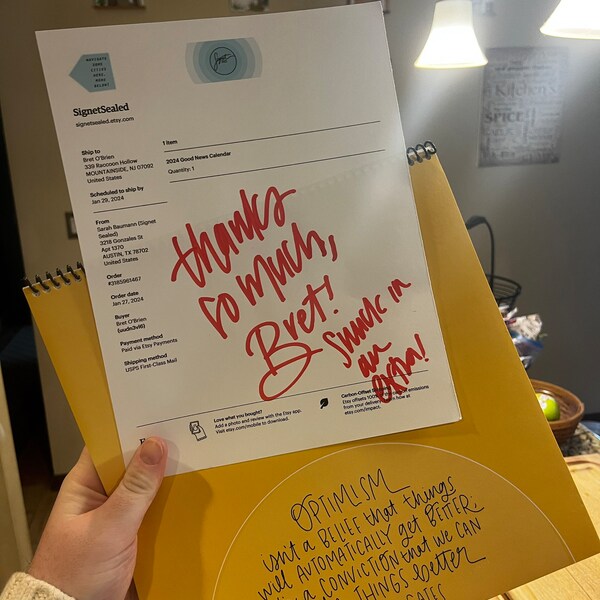 NAVIGATE
SOME
CITIES
HERE,
READ
BELOW!
SignetSealed
signetsealed.etsy.com
Ship to
Bret O'Brien
339 Raccoon Hollow
MOUNTAINSIDE, NJ 07092
United States
Scheduled to ship by
Jan 29, 2024
From
Sarah Baumann (Signet
Sealed)
3218 Gonzales St
Apt 1370
AUSTIN, TX 78702
United States
Order
#3165961467
Order date
Jan 27, 2024
Buyer
Bret O'Brien
(uudn3vl6)
Payment method
Paid via Etsy Payments
Shipping method
USPS First-Class Mail
1 item
2024 Good News Calendar
Quantity: 1
thanks
so much,
Bret!
Snuck in
an
extra!
Love what you bought?
Add a photo and review with the Etsy app.
Visit etsy.com/mobile to download.
Carbon-Offset
Etsy offsets 100% emissions
from your deliver how at
etsy.com/impact.
OPTIMISM
isn't a BELIEF that things
will AUTOMATICALLY get BETTER;
a CONVICTION that we CAN
THINGS better
GATES
Kitchen
SPICE